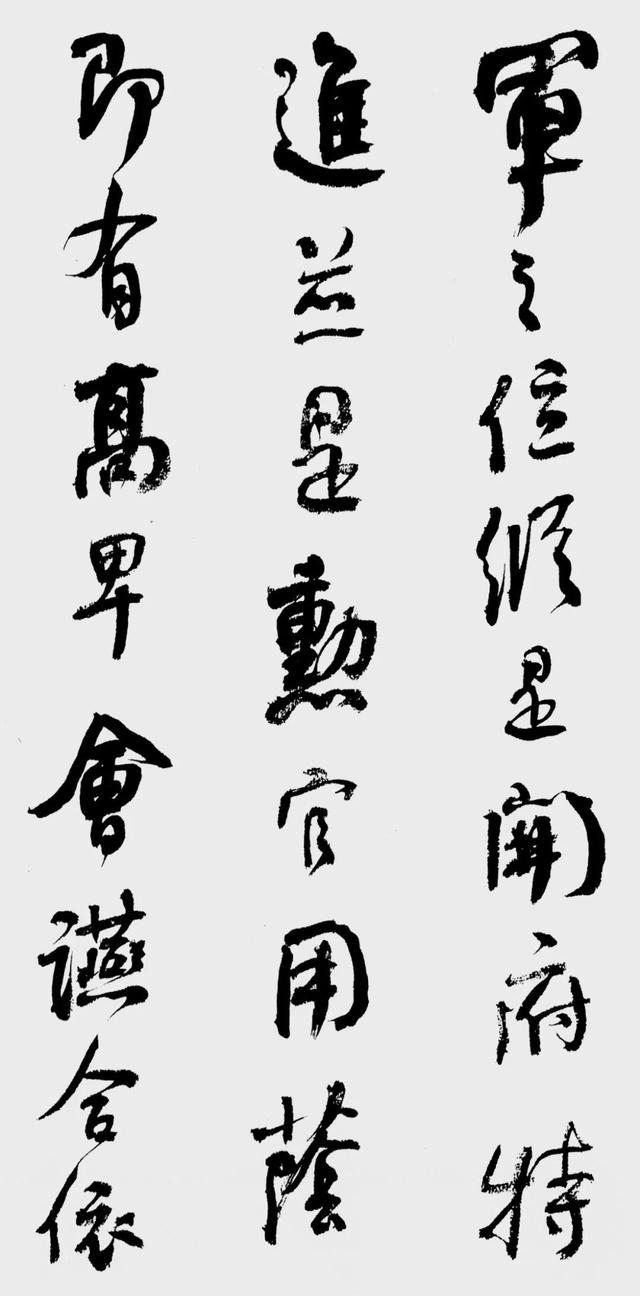 軍之位縱是開府特
進並是勳官用蔭
即有高卑會讌合依